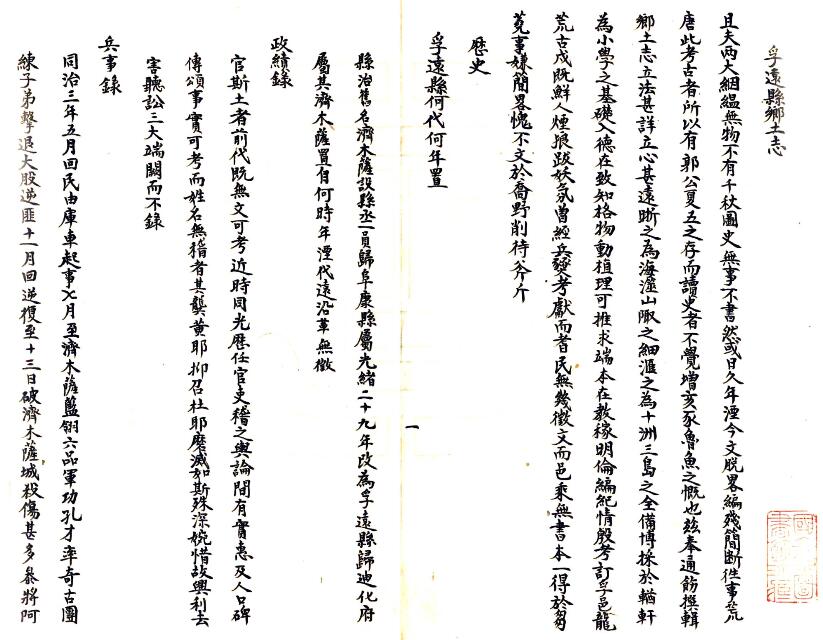 孚遠縣鄉土志
且夫两大絪緼無物不有千秋圖史無事不書然或日久年湮今文脫畧編殘簡断徃事荒
唐此考古者所以有郭公夏五之存而讀史者不覺增亥豕魯魚之慨也兹奉通飭撰輯
鄉土志立法甚詳立心甚遠晰之為海澨山陬之細滙之為十洲三島之全備博採於輶軒
為小學之基礎入德在致知格物動植理可推求端本在教稼明倫編紀情殷考訂孚邑龍
荒古戍既鮮人煙狼跋妖氛曾經兵燹考獻而耆民無幾徵文而邑乘無書本一得於芻
蕘事嫌簡畧愧不文於喬野削待斧斤
歷史
孚遠縣何代何年置
縣治舊名濟木薩設縣丞一員歸阜康縣屬光緒二十九年改為孚遠縣歸迪化府
屬其濟木薩置自何時年湮代遠沿革無徵
政績錄
官斯土者前代既無文可考近時同光歷任官吏稽之輿論間有實惠及人口碑
傳頌事實可考而姓名無稽者其龔黄耶抑召杜耶磨滅如斯殊深婉惜故興利去
害聽訟三大端闕而不錄
兵事錄
同治三年五月回民由庫車起事七月至濟木薩藍翎六品軍功孔才率奇古團
練子弟擊退大股逆匪十一月回逆復至十三日破濟木薩城殺傷甚多叅將阿
一